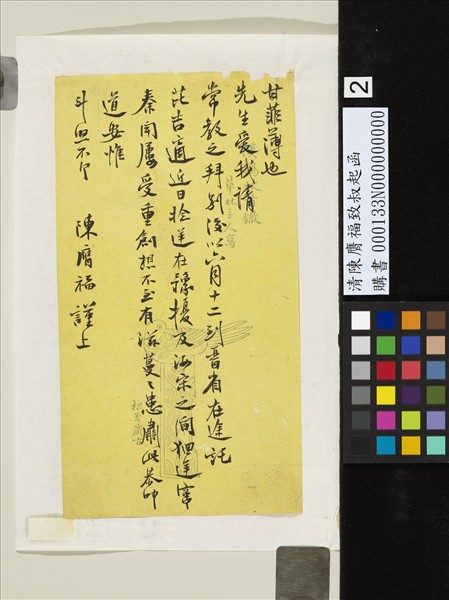 甘菲薄也
先生愛我請
常教之拜別後以六月十二到晉省在途託
芘吉適近日捻逆在豫擾及汝宋之間回逆窜
秦閒屢受重創想不至有滋蔓之患肅此恭叩
道安惟
斗照不宣
陳膺福謹上
2
清陳膺福致叔起函
購書 000133N000000000